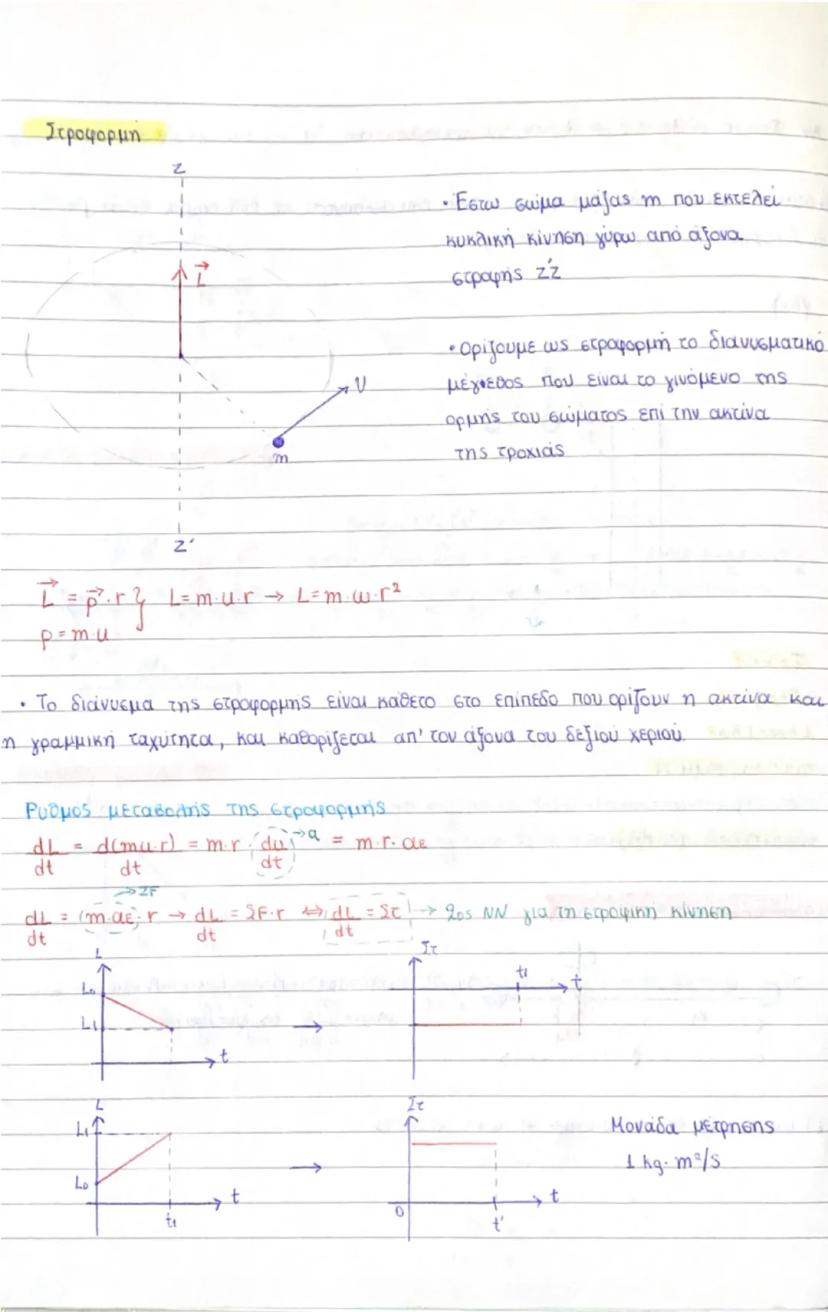 Στροφορμή
z
L⃗
υ
m
z'
• Έστω σώμα μάζας m που εκτελεί
κυκλική κίνηση γύρω από άξονα
στροφής z'z
• Ορίζουμε ως στροφορμή το διανυσματικό
μέγεθος που είναι το γινόμενο της
ορμής του σώματος επί την ακτίνα
της τροχιάς
L⃗ = p⃗·r } L=m·u·r → L=m·ω·r²
p=m·u
• Το διάνυσμα της στροφορμής είναι κάθετο στο επίπεδο που ορίζουν η ακτίνα και
η γραμμική ταχύτητα, και καθορίζεται απ' τον άξονα του δεξιού χεριού.
Ρυθμός μεταβολής της στροφορμής
dL/dt = d(mu·r)/dt = m·r·(du/dt)→a = m·r·αε
→ΣF
dL/dt = (m·αε)·r → dL/dt = ΣF·r ⇔ dL/dt = Στ → 2ος ΝΝ για τη στροφική κίνηση
L
L₀
L₁
t
→
Στ
t₁
t
L
L₁
L₀
t₁
t
→
Στ
0
t'
t
Μονάδα μέτρησης
1 kg·m²/s